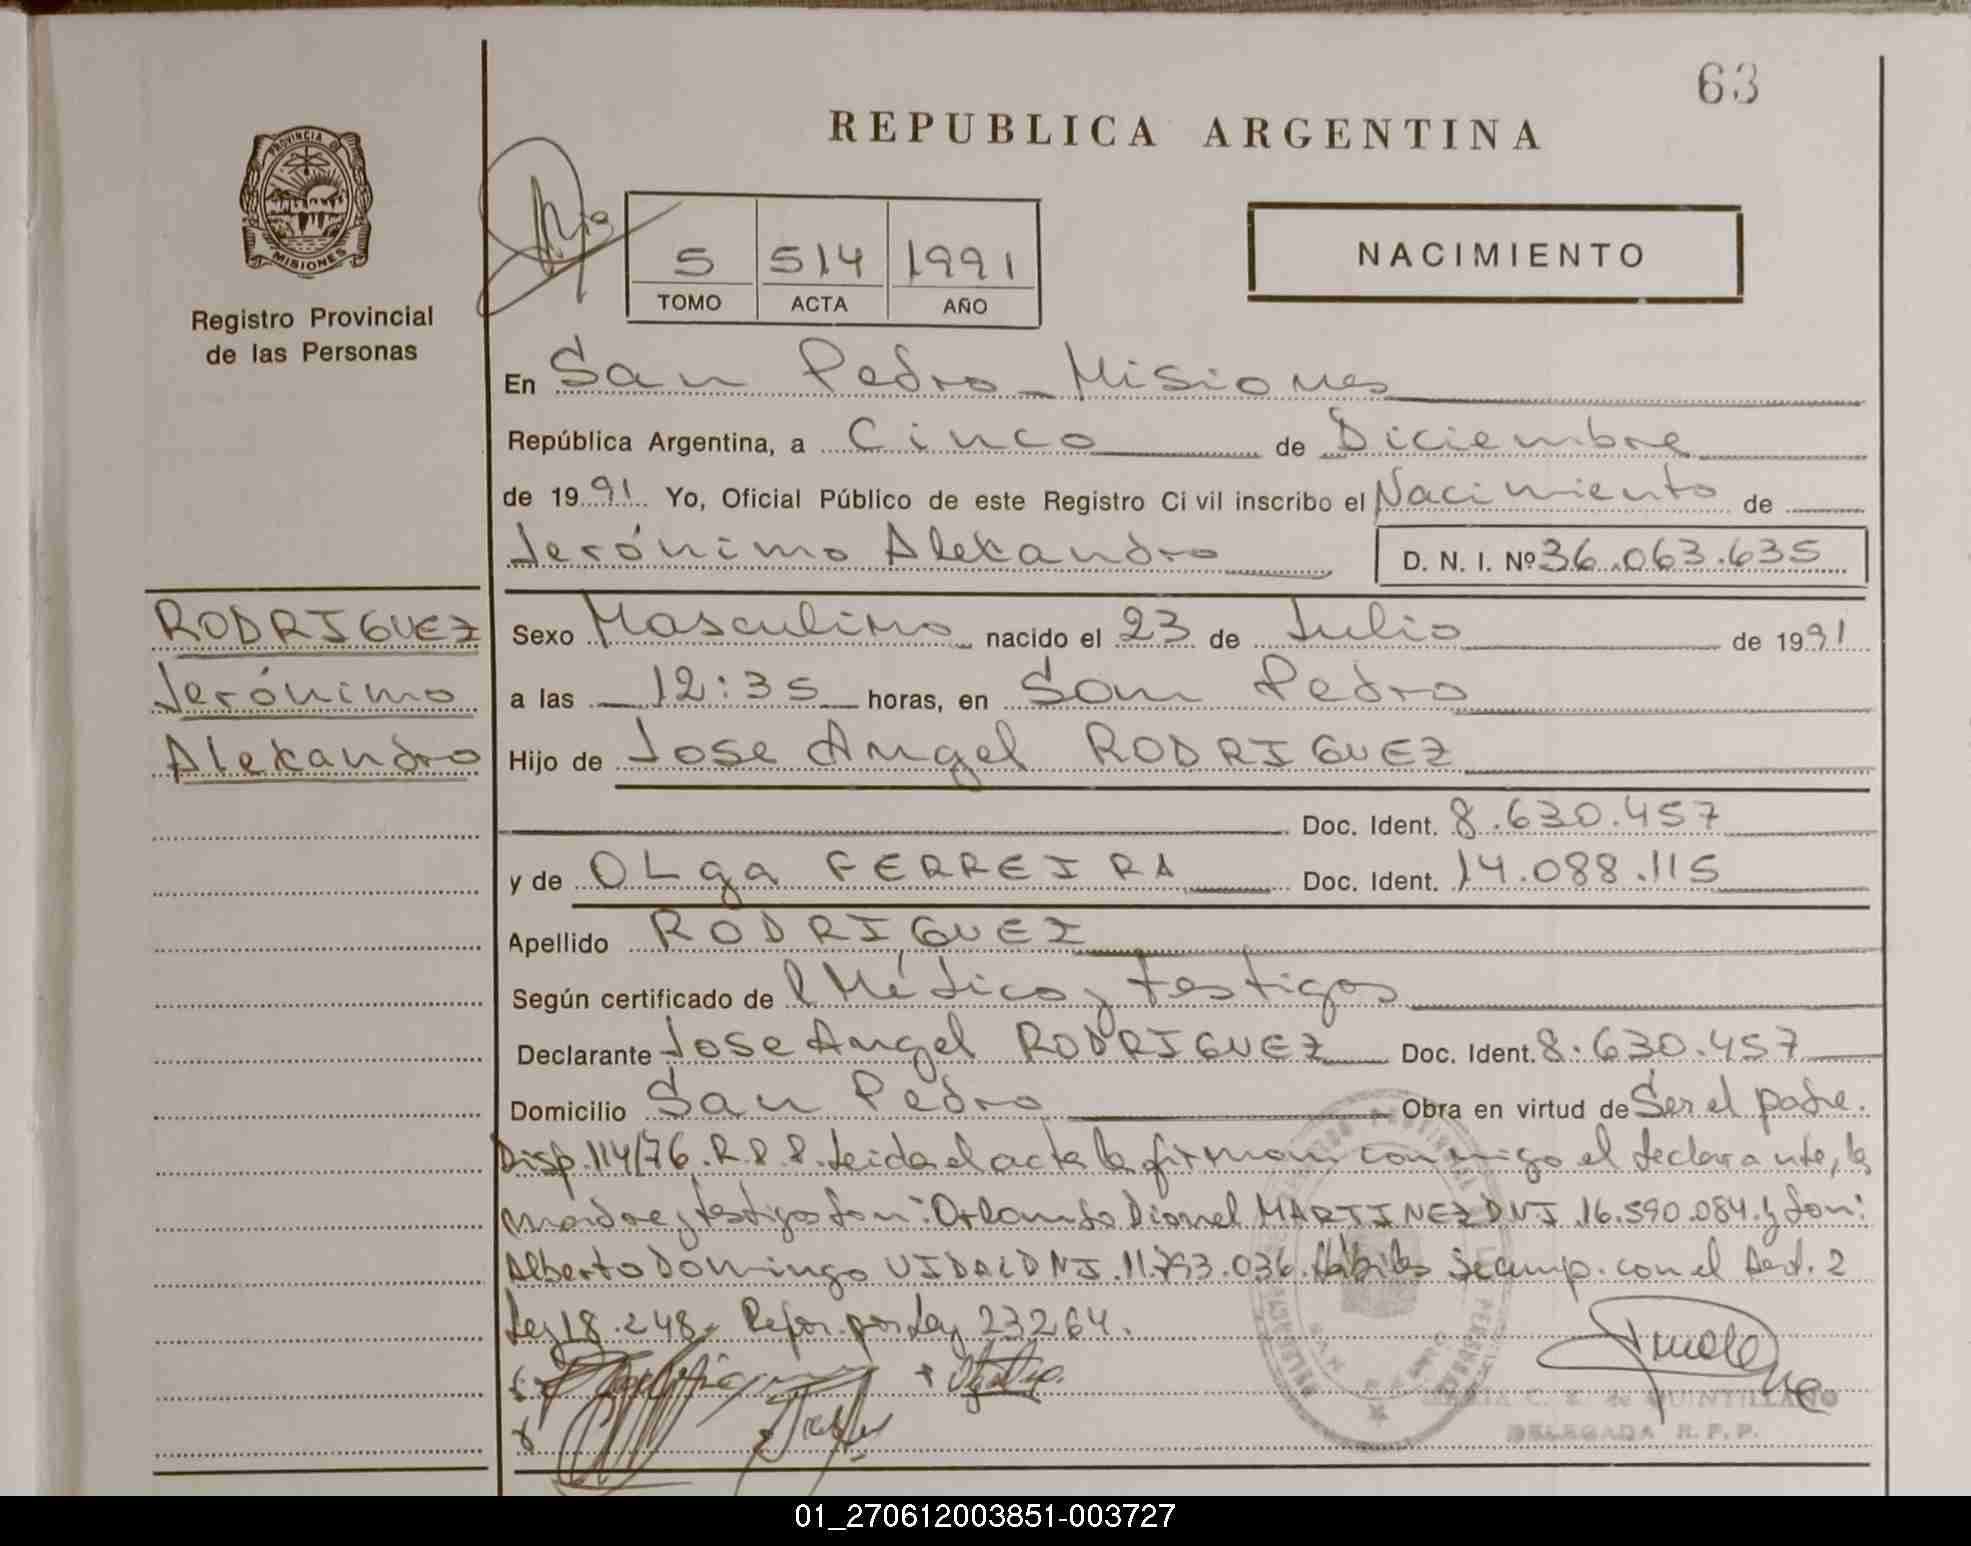 63
REPUBLICA ARGENTINA
PROVINCIA DE
MISIONES
Registro Provincial
de las Personas
5 514 1991
TOMO ACTA AÑO
NACIMIENTO
En San Pedro - Misiones
República Argentina, a Cinco de Diciembre
de 1991 Yo, Oficial Público de este Registro Civil inscribo el Nacimiento de
Jerónimo Alexandro D. N. I. Nº 36.063.635
RODRIGUEZ
Jerónimo
Alexandro
Sexo Masculino nacido el 23 de Julio de 1991
a las 12:35 horas, en San Pedro
Hijo de Jose Angel RODRIGUEZ
Doc. Ident. 8.630.457
y de OLga FERREIRA Doc. Ident. 14.088.115
Apellido RODRIGUEZ
Según certificado de l Médico y testigos
Declarante Jose Angel RODRIGUEZ Doc. Ident. 8.630.457
Domicilio San Pedro Obra en virtud de Ser el padre.
Disp. 114/76. R.P.P. Leida el acta la firman conmigo el declarante, la
madre y testigos don: Orlando Dionel MARTINEZ DNI. 16.590.084. y don:
Alberto Domingo VIDAL DNI. 11.793.036. Hábiles Se cump. con el Art. 2
Ley 18.248. Refor. por Ley 23264.
C. E. de QUINTILLANO
DELEGADA R. P. P.
01_270612003851-003727